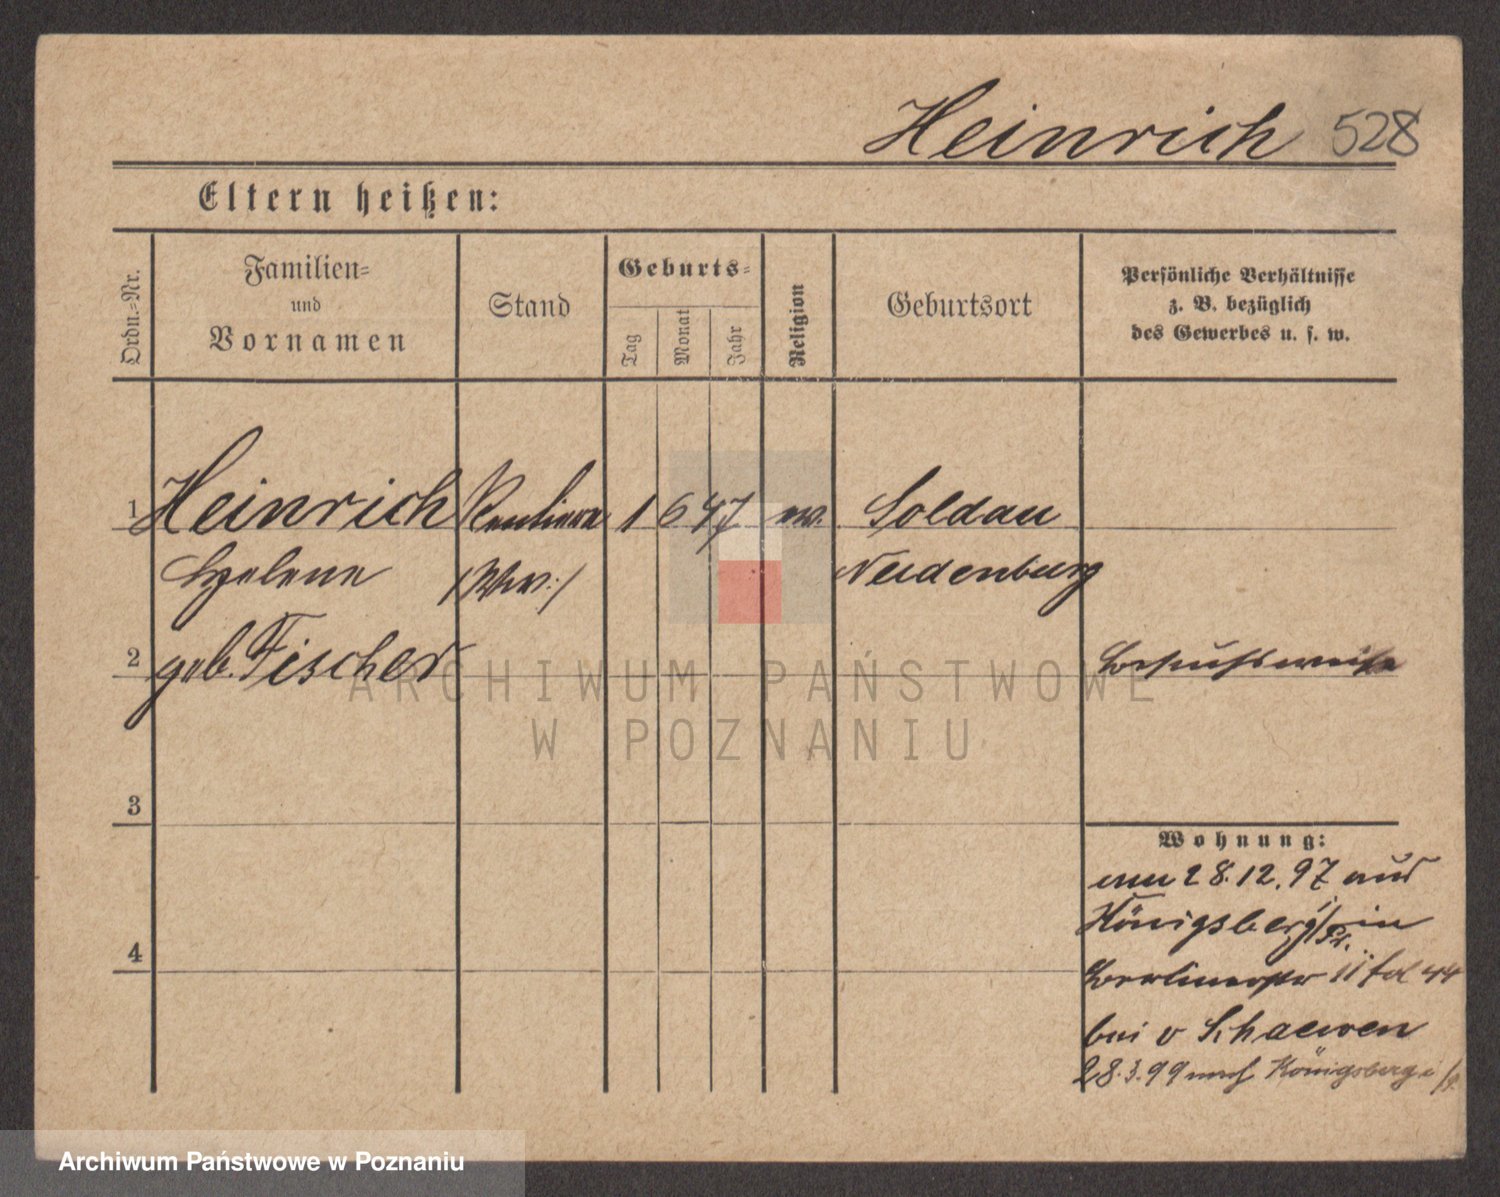 Heinrich 528
Eltern heißen:
Ordn.=Nr.
Familien=
und
Vornamen
Stand
Geburts=
Tag
Monat
Jahr
Religion
Geburtsort
Persönliche Verhältnisse
z. B. bezüglich
des Gewerbes u. s. w.
1 Heinrich Rentiere 1 6 47 ev. Soldau
Helene /Ww:/ Neidenburg
2 geb. Fischer Besuchsweise
3
4
Wohnung:
am 28.12.97 aus
Königsberg i/Pr. in
Berlinerstr 11 fol 44
bei v Schaewen
28.3.99 nach Königsberg i/P.
ARCHIWUM PAŃSTWOWE
W POZNANIU
Archiwum Państwowe w Poznaniu